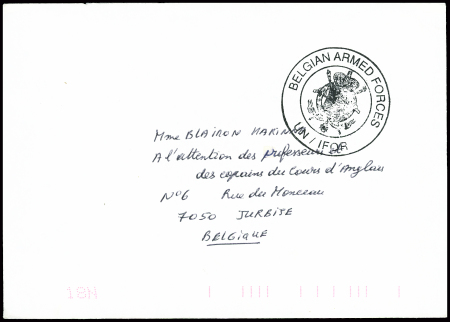 BELGIAN ARMED FORCES
UN / IFOR
Mme BLAIRON MARINA
A l'attention des professeurs et
des copains du Cours d'Anglais
N°6 Rue du Monceau
7050 JURBISE
BELGIQUE